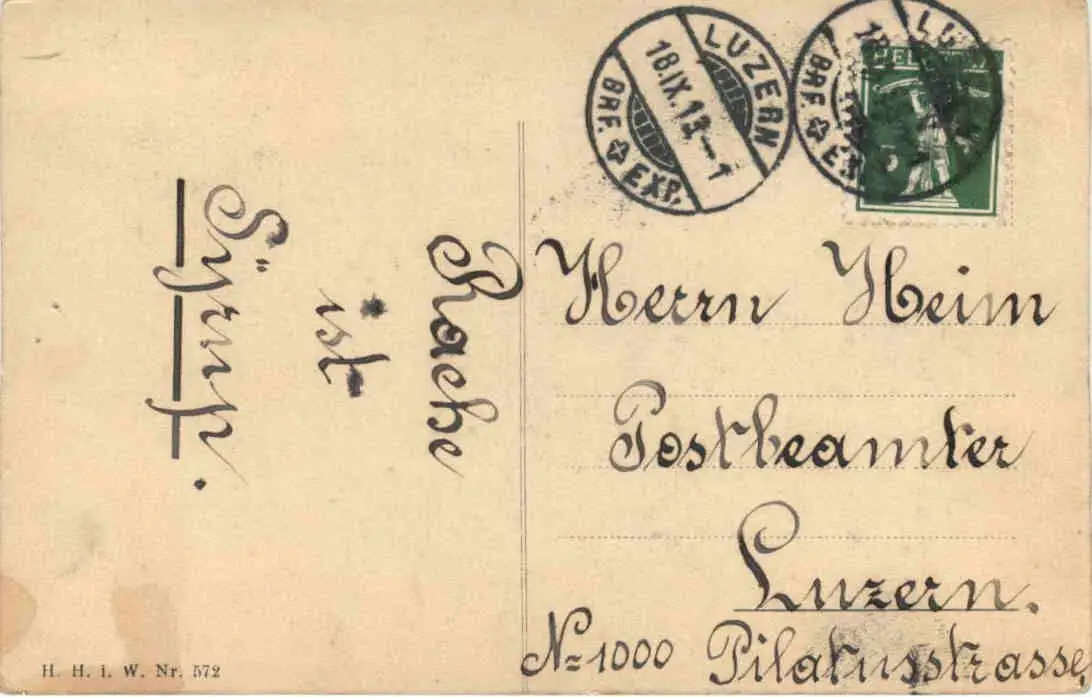 LUZERN
18.IX.13.–1
BRF. EXP.
HELVETIA
Rache
ist
Sürup.
Herrn Heim
Postbeamter
Luzern.
No 1000 Pilatusstrasse
H. H. i. W. Nr. 572